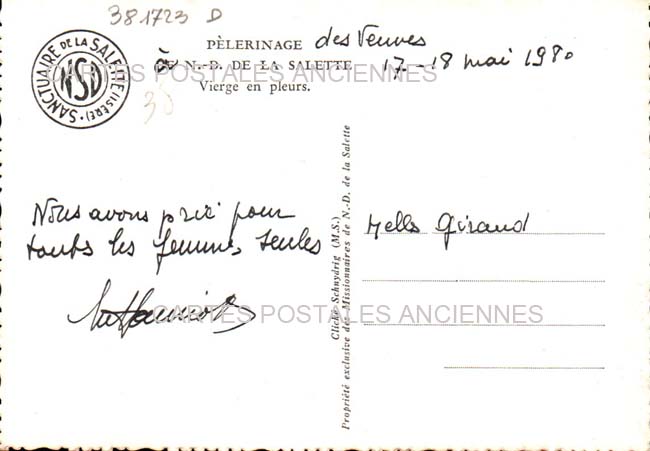 381723 D
SANCTUAIRE DE LA SALETTE (ISÈRE)
NSD
PÈLERINAGE des Veuves
à N.-D. DE LA SALETTE 17-18 mai 1980
Vierge en pleurs.
CARTES POSTALES ANCIENNES
Nous avons prié pour
toutes les femmes seules
Melle Giraud
CARTES POSTALES ANCIENNES
Cliché Schnydrig (M.S.)
Propriété exclusive des Missionnaires de N.-D. de la Salette